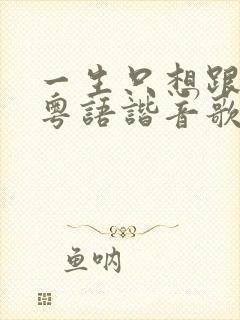 一生只想跟
粤語諧音歌
鱼呐